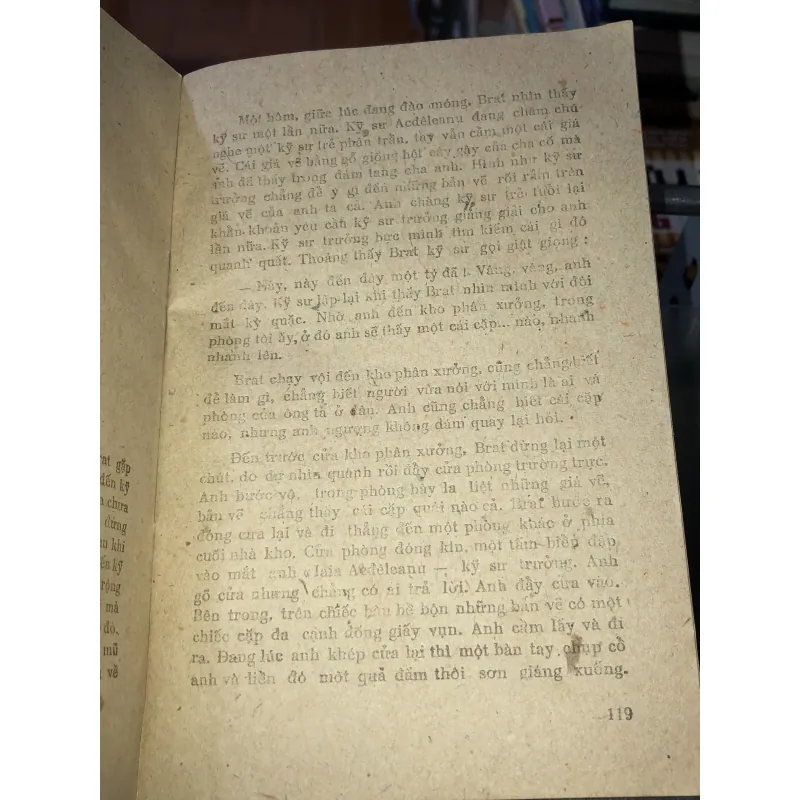 Một hôm, giữa lúc đang đào móng, Brat nhìn thấy
kỹ sư một lần nữa. Kỹ sư Acđêleanu đang chăm chú
nghe một kỹ sư trẻ phân trần, tay vẫn cầm một cái giá
vẽ. Cái giá vẽ bằng gỗ giống hệt cây gậy của cha cố mà
anh đã thấy trong đám tang cha anh. Hình như kỹ sư
trưởng chẳng để ý gì đến những bản vẽ rối rắm trên
giá vẽ của anh ta cả. Anh chàng kỹ sư trẻ tuổi lại
khẩn khoản yêu cầu kỹ sư trưởng giảng giải cho anh
lần nữa. Kỹ sư trưởng bực mình tìm kiếm cái gì đó
quanh quất. Thoáng thấy Brat kỹ sư gọi giật giọng :
— Này, này đến đây một tý đã ! Vâng, vâng, anh
đến đây. Kỹ sư lặp lại khi thấy Brat nhìn mình với đôi
mắt kỳ quặc. Nhờ anh đến kho phân xưởng, trong
phòng tôi ấy, ở đó anh sẽ thấy một cái cặp... nào, nhanh
nhanh lên.
Brat chạy vội đến kho phân xưởng, cũng chẳng biết
để làm gì, chẳng biết người vừa nói với mình là ai và
phòng của ông ta ở đâu. Anh cũng chẳng biết cái cặp
nào, nhưng anh ngượng không dám quay lại hỏi.
Đến trước cửa kho phân xưởng, Brat dừng lại một
chút, do dự nhìn quanh rồi đẩy cửa phòng trường trực.
Anh bước vô, trong phòng bày la liệt những giá vẽ,
bản vẽ chẳng thấy cái cặp quái nào cả. Brat bước ra
đóng cửa lại và đi thẳng đến một phòng khác ở phía
cuối nhà kho. Cửa phòng đóng kín, một tấm biển đập
vào mắt anh « Iala Acđêleanu — kỹ sư trưởng. Anh
gõ cửa nhưng chẳng có ai trả lời. Anh đẩy cửa vào.
Bên trong, trên chiếc bàn bề bộn những bản vẽ có một
chiếc cặp da cạnh đống giấy vụn. Anh cầm lấy và đi
ra. Đang lúc anh khép cửa lại thì một bàn tay chụp cổ
anh và liền đó một quả đấm thôi sơn giáng xuống.
119
rat gặp
đến kỹ
chưa
dừng
khi
kỹ
rộng
mà
đó,
mũ
về